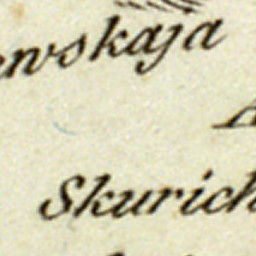 ewskaja
A
Skurich